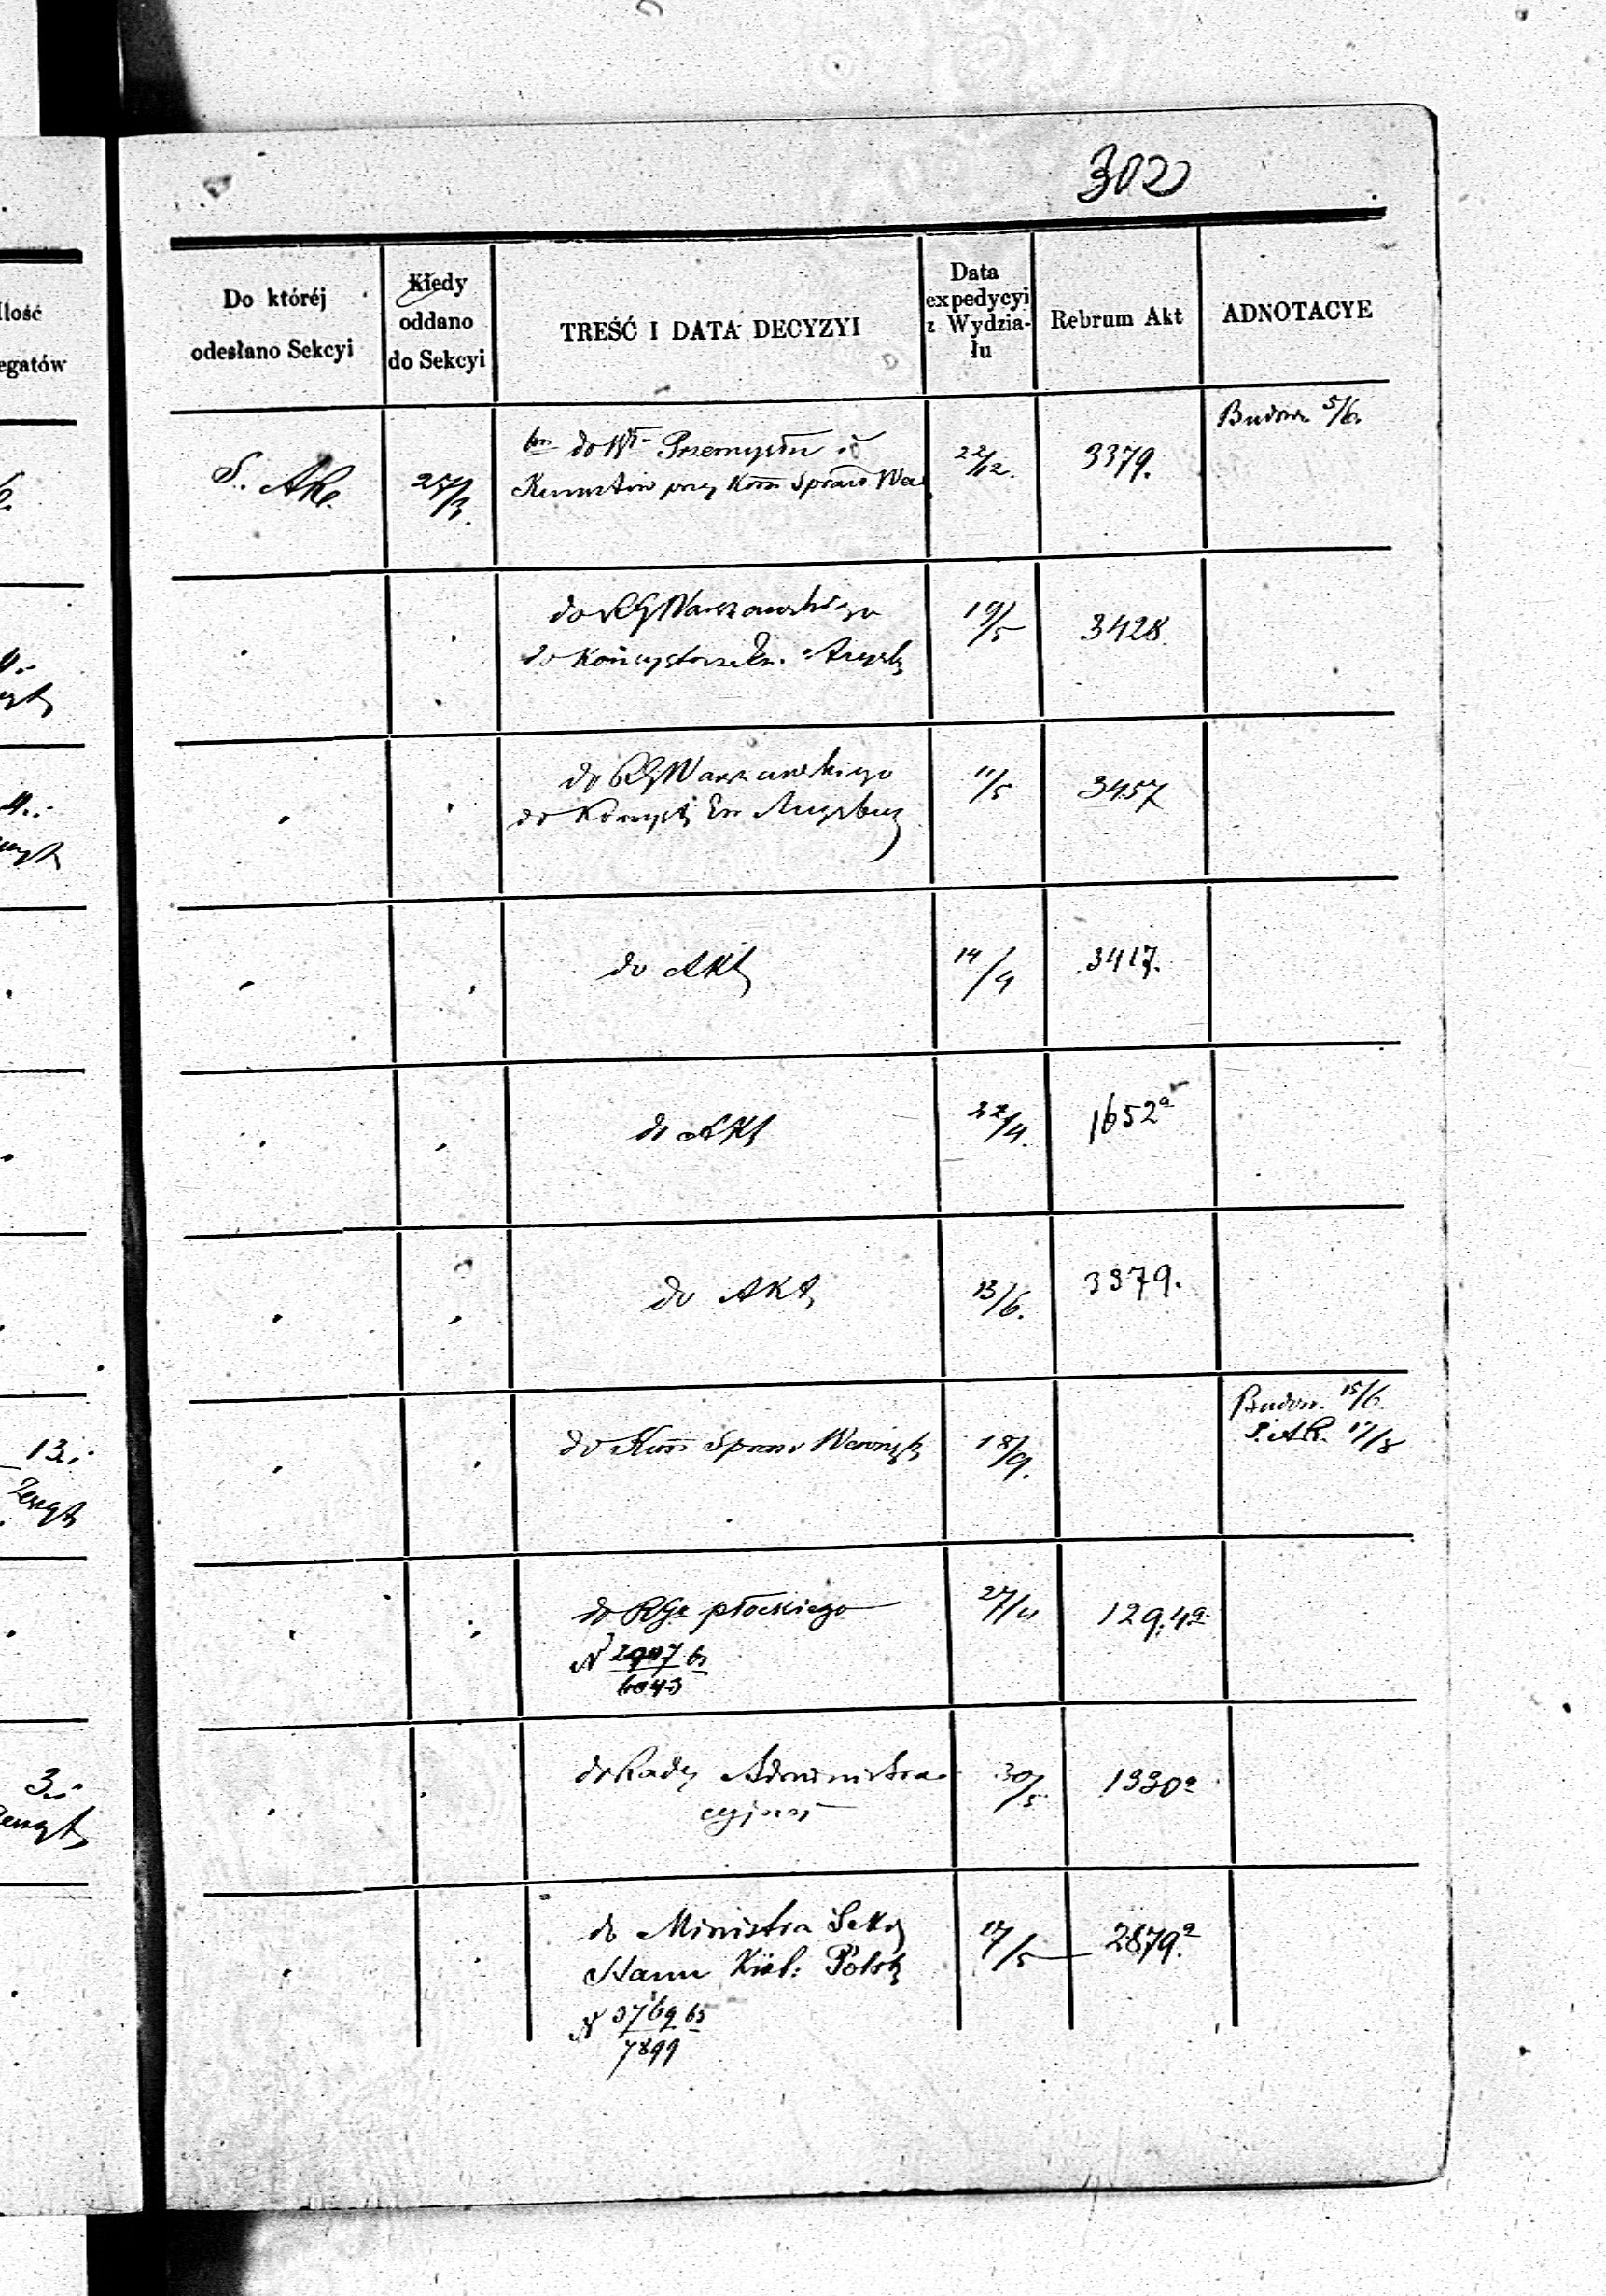 302
Ilość
egatów
Do któréj
odesłano Sekcyi
Kiedy
oddano
do Sekcyi
TREŚĆ I DATA DECYZYI
Data
expedycyi
z Wydzia-
łu
Rebrum Akt
ADNOTACYE
S. AKe.
do Wł Przemysłu i
przy Kom Spraw Wew
22/12.
3379.
Budow. 5/6.
do RG Warszawskiego
do Konsystorza Ew. Augsb
19/5
3428.
do RG Warszawskiego
do Konsyst Ew Augsburg
11/5
3457
do Akt
14/4
3417.
do Akt
22/4.
1652a
do Akt
13/6.
3379.
13.
Zeszyt
do Kom Spraw Wewnęt
18/9.
Budow. 15/6.
S. AK. 17/8
do RGu płockiego
27/11
129.4a
N 2907 63
6043
3.
Zeszyt
do Rady Administra
cyjnej
30/5
1330a
do Ministra Sekr
Stanu Król: Polsk
17/5
2879.a
N 3769 63
7899